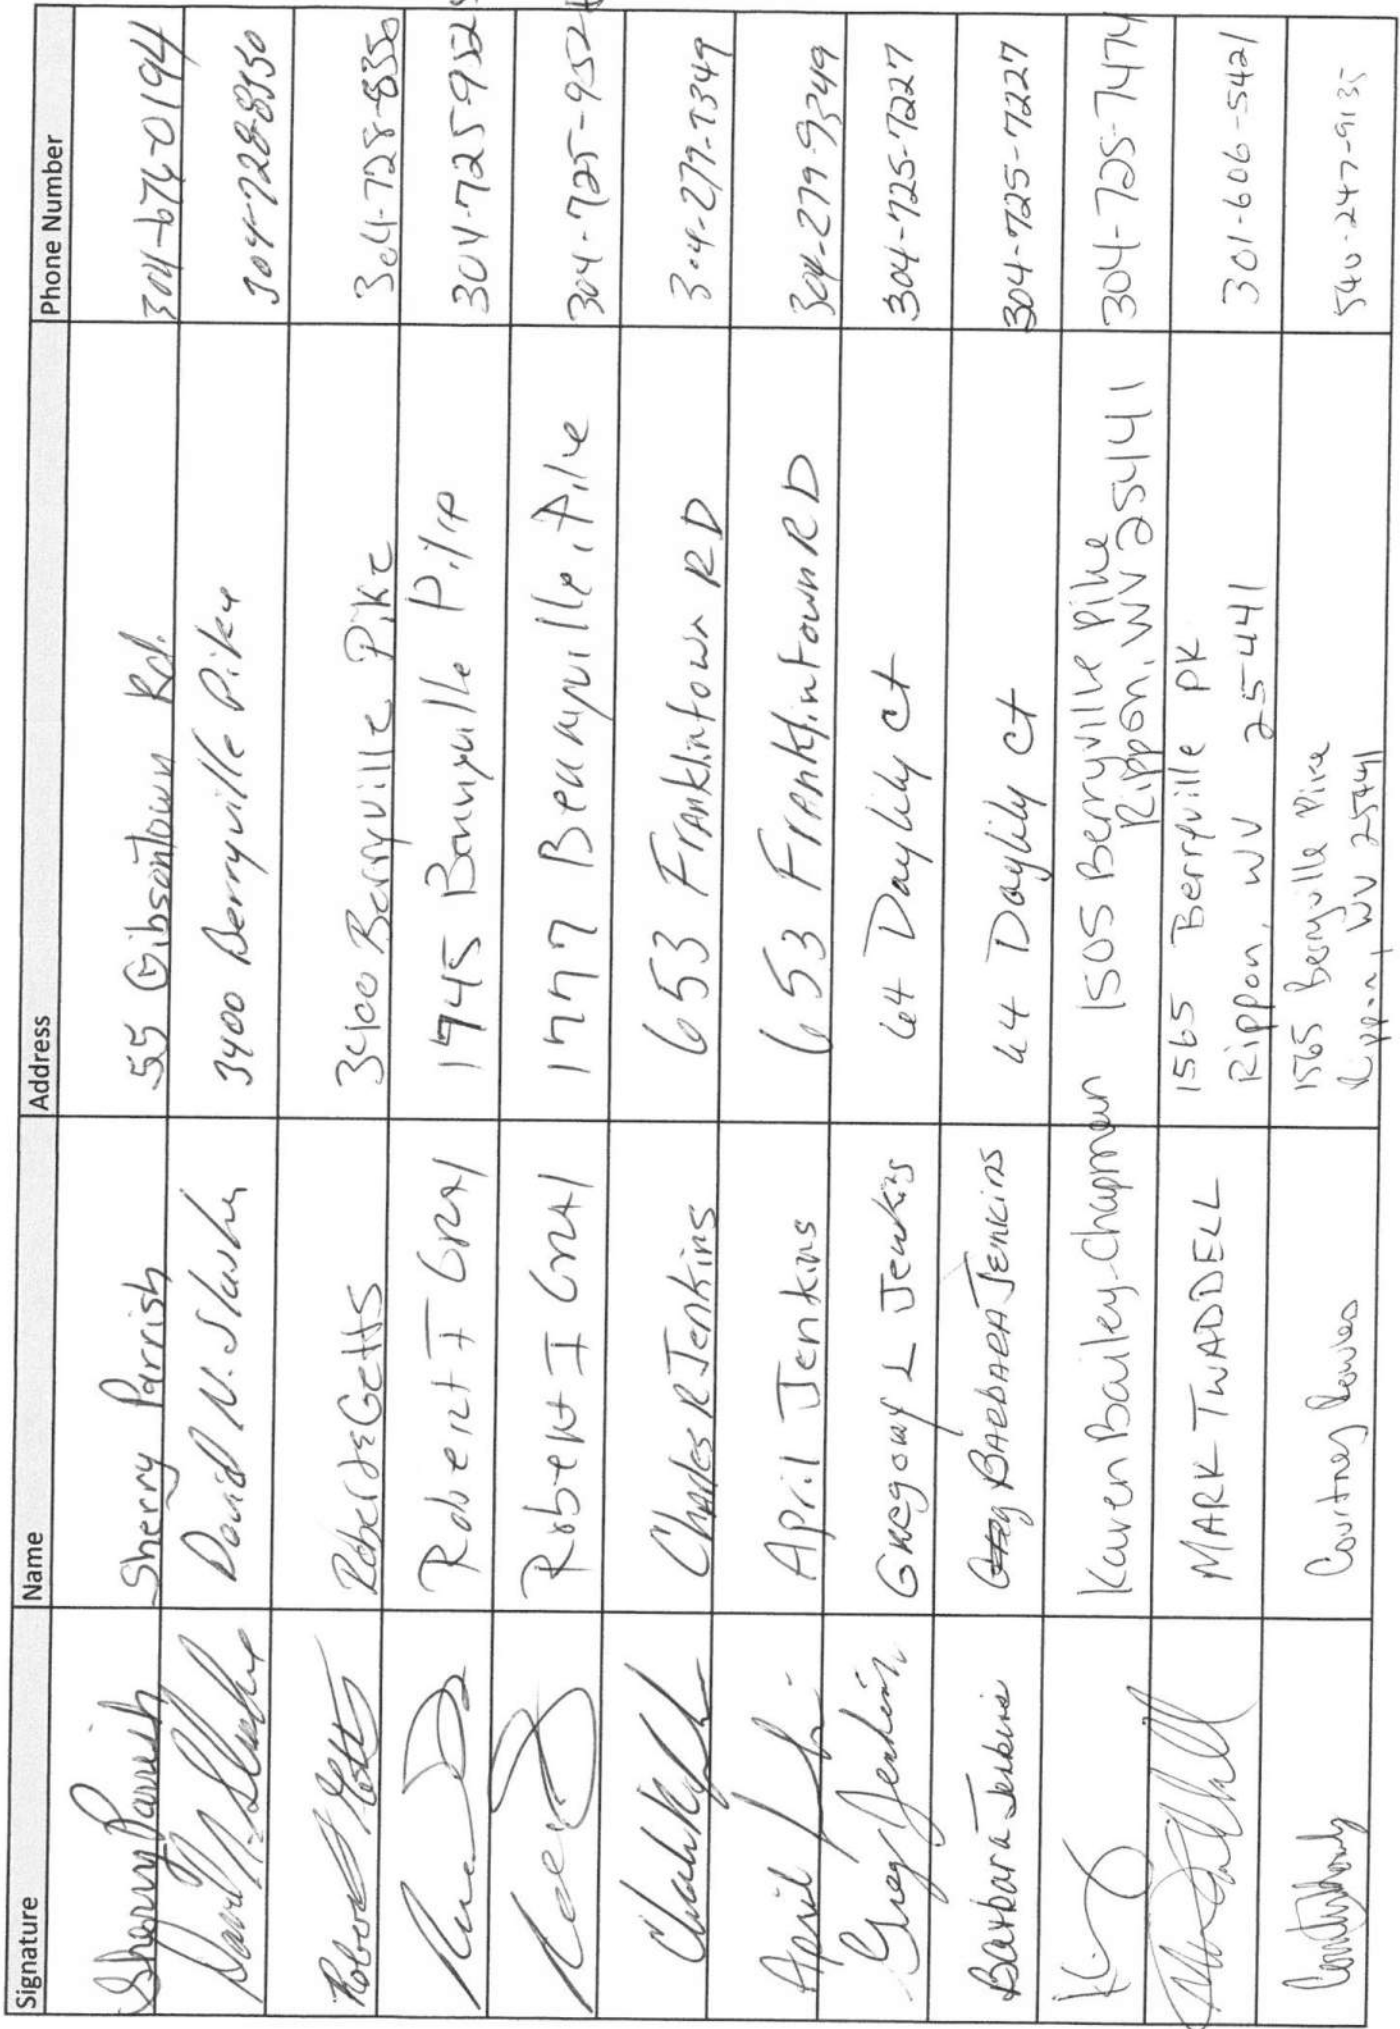 Signature Name Address Phone Number
Sherry Parrish Sherry Parrish 55 Gibsontown Rd. 304-676-0194
David N. Slusher David N. Slusher 3400 Berryville Pike 304-728-8350
Robert Getts Robert E Getts 3400 Berryville Pike 304-728-8350
Robert I GRAY 1745 Berryville Pike 304-725-952
Robert I GRAY 1777 Berryville Pike 304-725-952
Charles R Jenkins 653 Franklintown RD 304-279-9349
April J April Jenkins 653 Franklintown RD 304-279-9349
Greg Jenkins Gregory L Jenkins 64 Daylily Ct 304-725-7227
Barbara Jenkins BARBARA JENKINS 64 Daylily Ct 304-725-7227
Karen Bailey-Chapman 1505 Berryville Pike 304-725-7474
Rippon, WV 25441
MARK TWADDELL 1565 Berryville PK 301-606-5421
Rippon, WV 25441
Courtney 1565 Berryville Pike 540-247-9135
Rippon, WV 25441